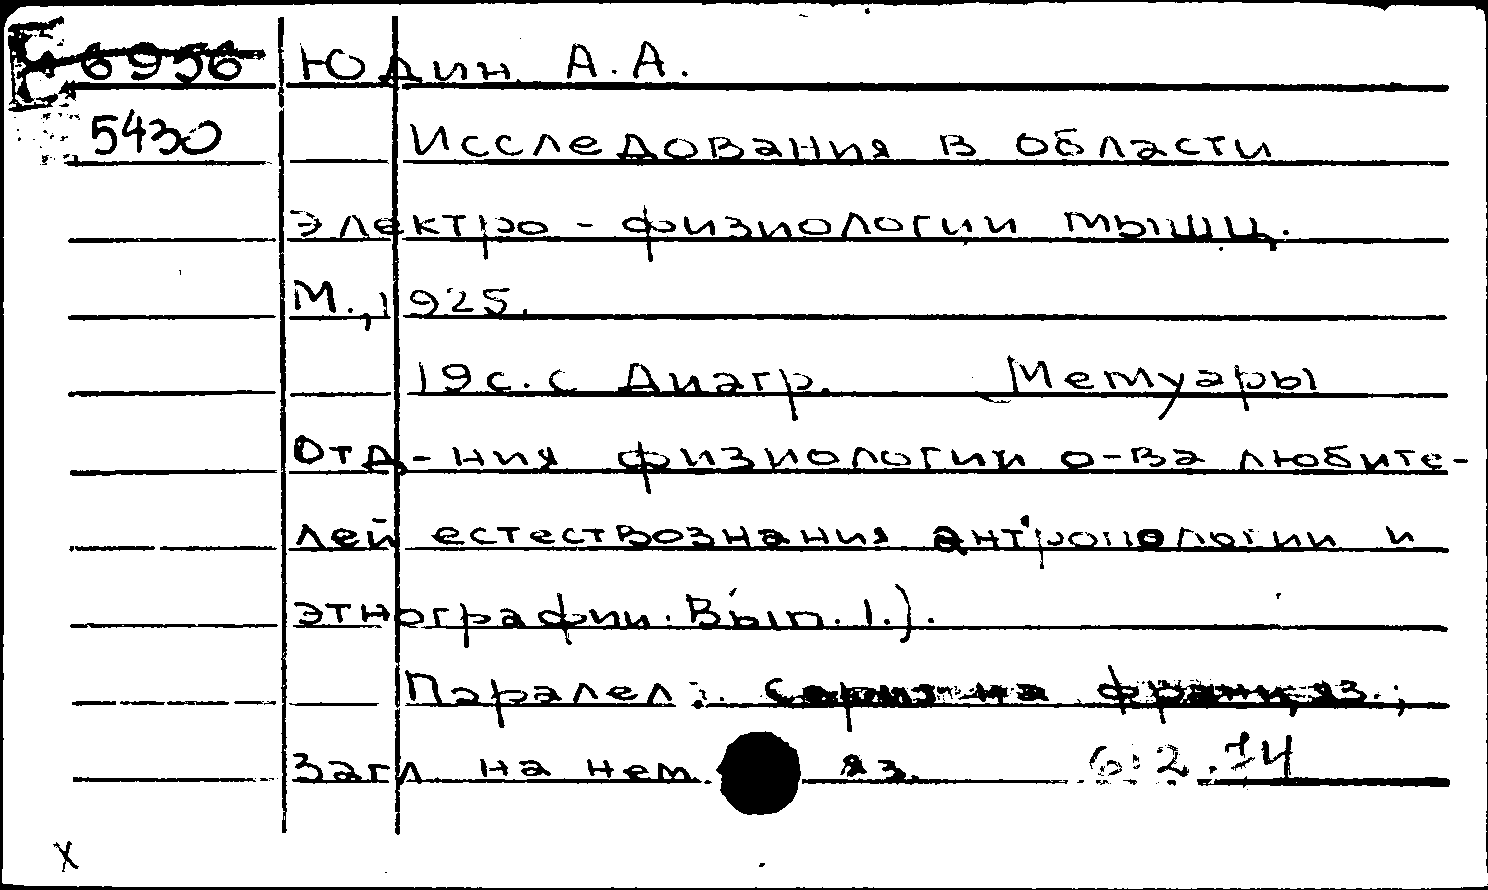 6956 Юдин А.А.
5430 Исследования в области
электро-физиологии мышц.
М., 1925.
19 с. с диагр. (Мемуары
Отд-ния физиологии о-ва любите-
лей естествознания антропологии и
этнографии. Вып. 1.).
Паралел. : Серия на франц. яз.;
Загл на нем. яз. 612.74
х